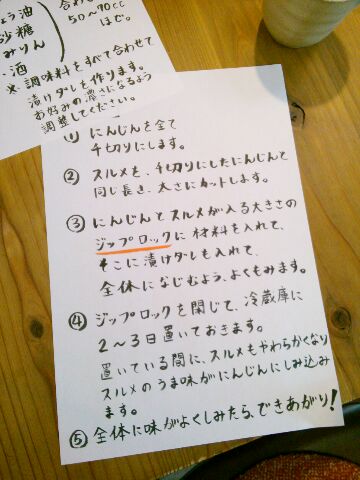 しょう油
砂糖
みりん
酒
合わ
50〜70cc
ほど。
※調味料をすべて合わせて
漬けダレを作ります。
お好みの濃さになるよう
調整してください。
① にんじんを全て
千切りにします。
② スルメを、千切りにしたにんじんと
同じ長さ、太さにカットします。
③ にんじんとスルメが入る大きさの
ジップロックに材料を入れて、
そこに漬けダレも入れて、
全体になじむよう、よくもみます。
④ ジップロックを閉じて、冷蔵庫に
2〜3日置いておきます。
置いている間に、スルメもやわらかくなり
スルメのうま味がにんじんにしみ込み
ます。
⑤ 全体に味がよくしみたら、できあがり!